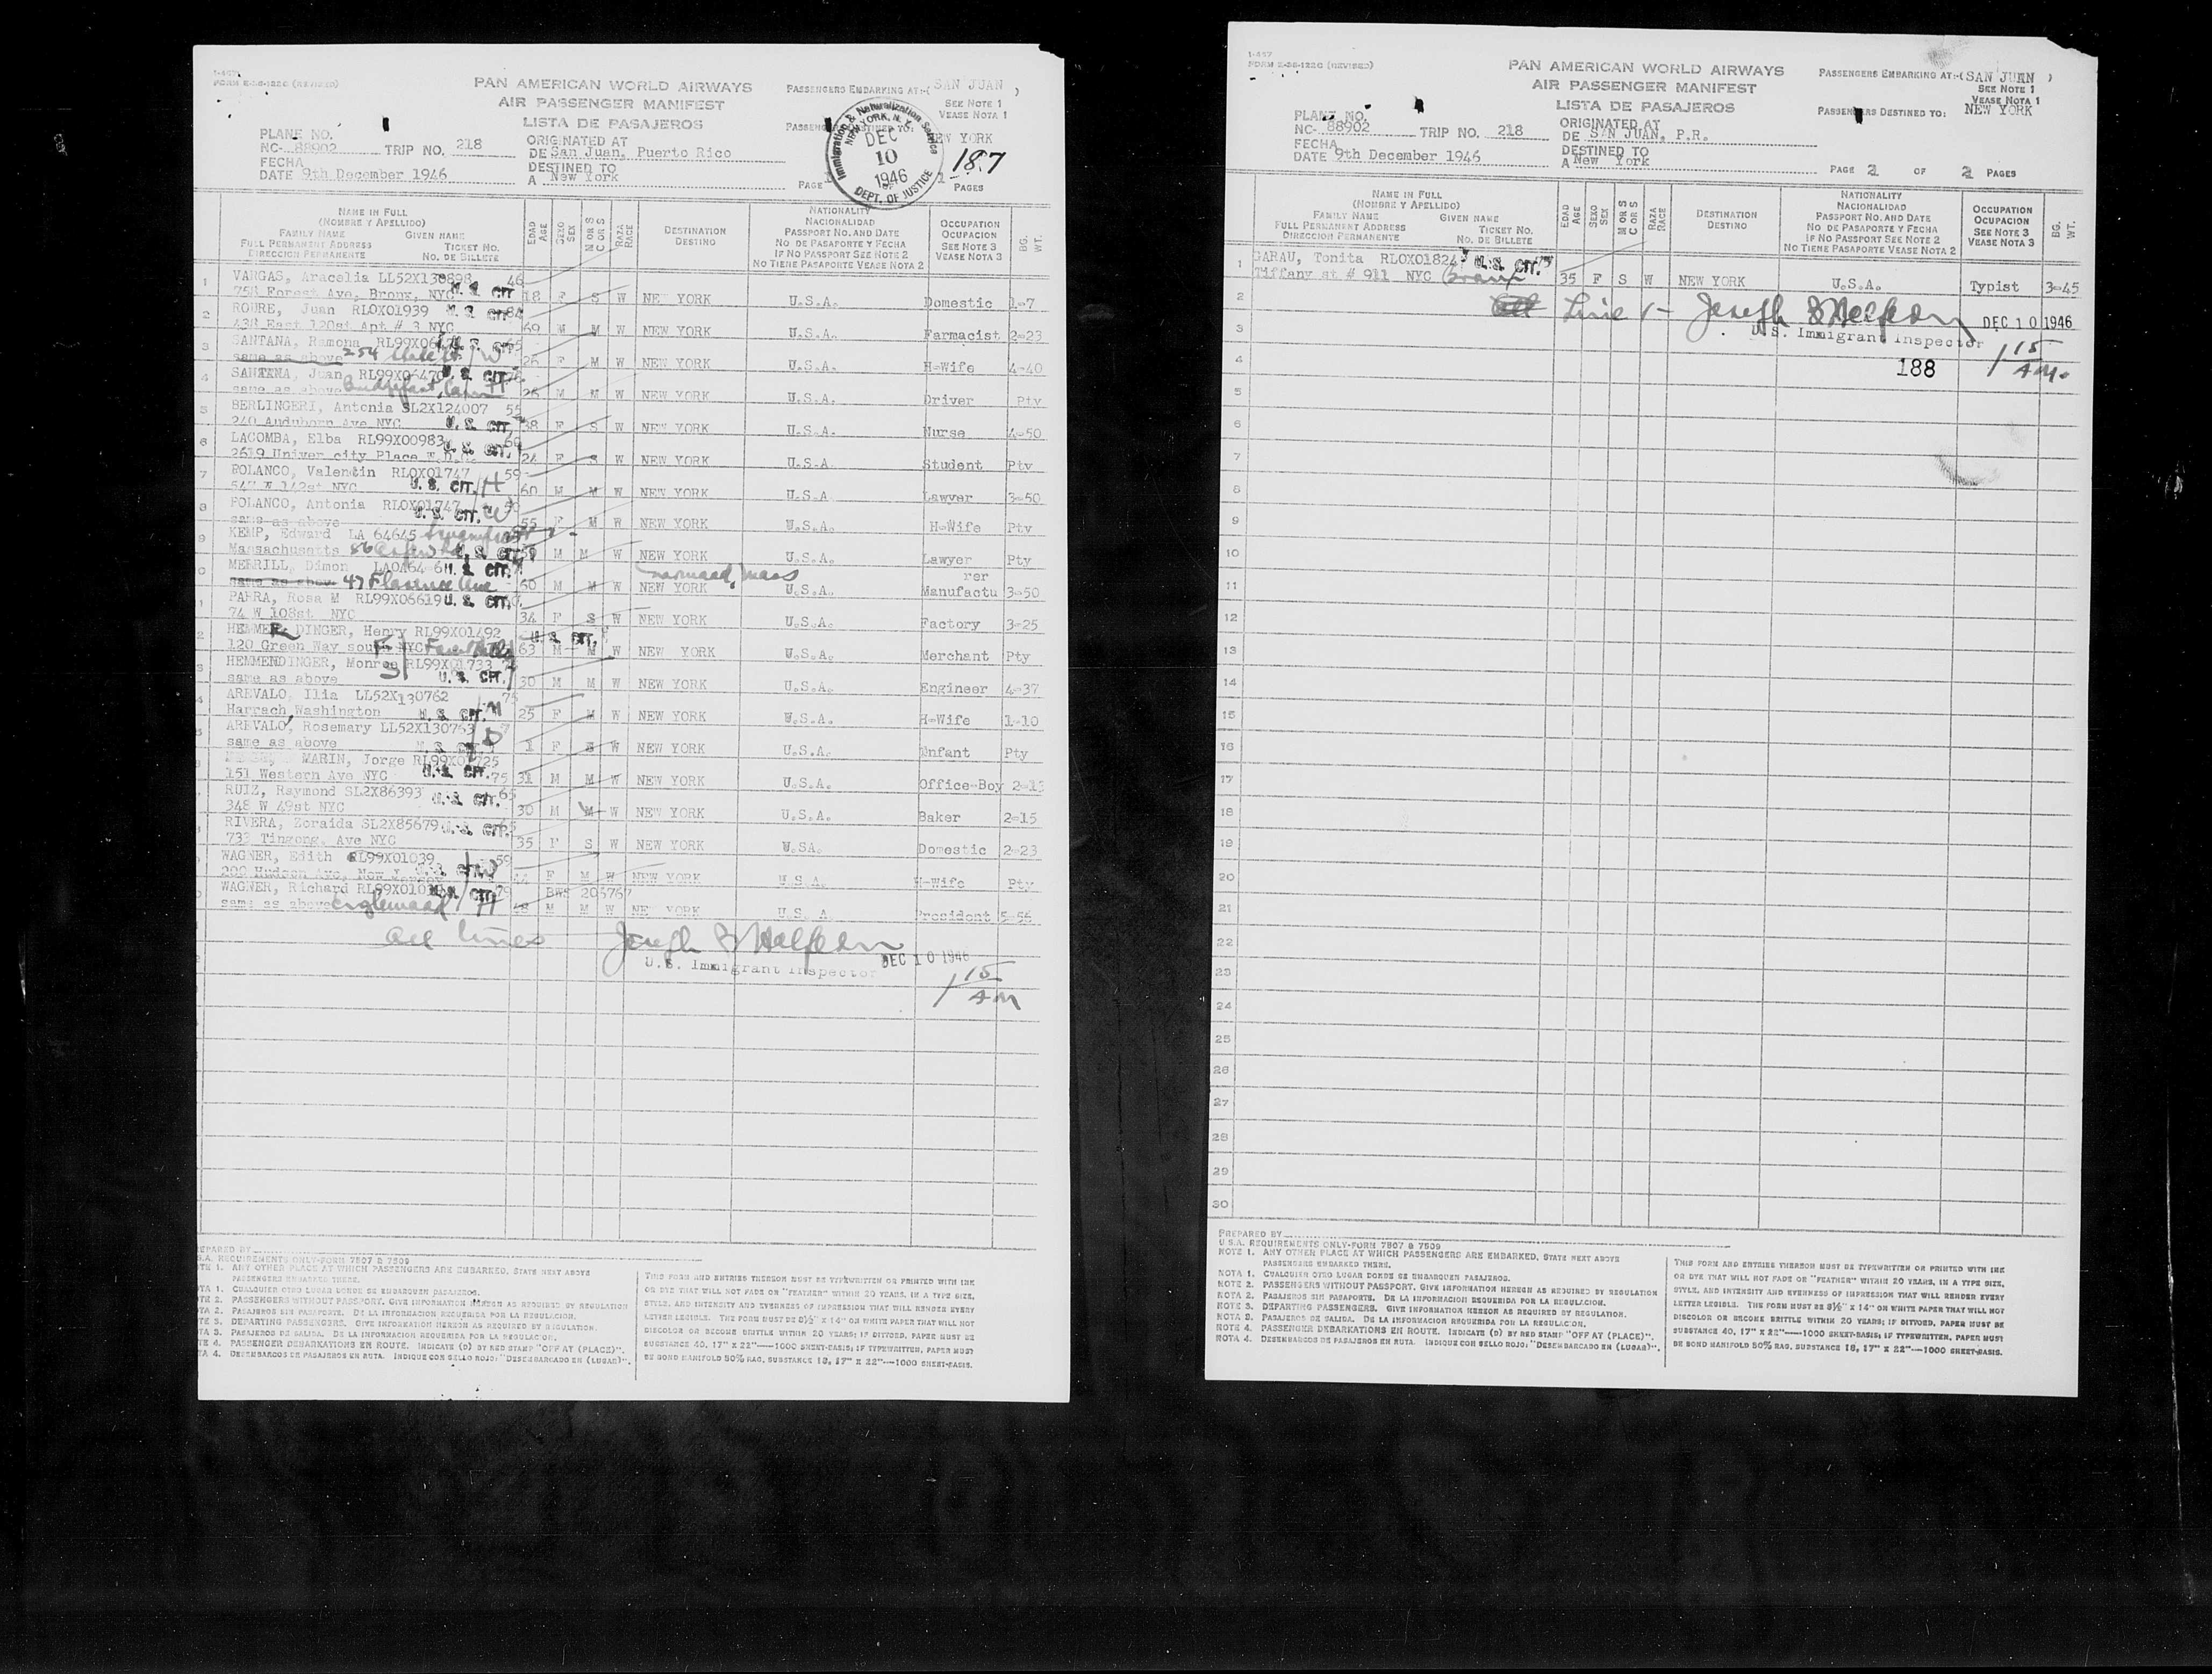 I-457
FORM E-36-122C (REVISED)
PAN AMERICAN WORLD AIRWAYS
AIR PASSENGER MANIFEST
LISTA DE PASAJEROS
PASSENGERS EMBARKING AT:-( SAN JUAN )
SEE NOTE 1
VEASE NOTA 1
PASSENGERS DESTINED TO: NEW YORK
Immigration & Naturalization Service
NEW YORK, N.Y.
DEC
10
1946
DEPT. OF JUSTICE
187
PLANE NO.
NC- 88902 TRIP NO. 218
ORIGINATED AT
DE San Juan, Puerto Rico
FECHA
DATE 9th December 1946
DESTINED TO
A New York
PAGE PAGES
NAME IN FULL
(NOMBRE Y APELLIDO)
FAMILY NAME GIVEN NAME
FULL PERMANENT ADDRESS TICKET NO.
DIRECCION PERMANENTE NO. DE BILLETE
EDAD AGE
SEXO SEX
M OR S C OR S
RAZA RACE
DESTINATION
DESTINO
NATIONALITY
NACIONALIDAD
PASSPORT NO. AND DATE
NO. DE PASAPORTE Y FECHA
IF NO PASSPORT SEE NOTE 2
NO TIENE PASAPORTE VEASE NOTA 2
OCCUPATION
OCUPACION
SEE NOTE 3
VEASE NOTA 3
BG. WT.
1 VARGAS, Aracelia LL52X130898 46
758 Forest Ave, Bronx, NYC U. S. CIT 18 F S W NEW YORK U.S.A. Domestic 1-7
2 ROURE, Juan RL0X01939 U. S. CIT 84
438 East 120st Apt # 3 NYC 69 M M W NEW YORK U.S.A. Farmacist 2-23
3 SANTANA, Ramona
same as above 254 State St W 26 F M W NEW YORK U.S.A. H-Wife 4-40
4 SANTANA, Juan RL99X06470 U. S. CIT.
same as above Bridgeport, Conn H 26 M M W NEW YORK U.S.A. Driver Pty
5 BERLINGERI, Antonia SL2X124007
240 Auduborn Ave NYC U. S. CIT. 38 F S W NEW YORK U.S.A. Nurse 4-50
6 LACOMBA, Elba RL99X00983 U. S. CIT.
2619 Univer city Place 24 F S W NEW YORK U.S.A. Student Pty
7 POLANCO, Valentin RL0X01747 59
547 W 142st NYC U. S. CIT. H 60 M M W NEW YORK U.S.A. Lawyer 3-50
8 POLANCO, Antonia RL0X01747
same as above U. S. CIT. W 55 F M W NEW YORK U.S.A. H-Wife Pty
9 KEMP, Edward LA 64645
Massachusetts U. S. CIT. M M W NEW YORK U.S.A. Lawyer Pty
MERRILL, Dimon U. S. CIT.
same as above 47 Florence Ave Norwood, Mass 60 M M W NEW YORK U.S.A. Manufacturer 3-50
PARRA, Rosa M RL99X06619 U. S. CIT.
74 W 108st NYC 34 F S W NEW YORK U.S.A. Factory 3-25
HEMMENDINGER, Henry RL99X01492 U. S. CIT.
120 Green Way south NYC Forest Hills F 63 M M W NEW YORK U.S.A. Merchant Pty
HEMMENDINGER, Monroe RL99X01733
same as above S U. S. CIT. 30 M M W NEW YORK U.S.A. Engineer 4-37
AREVALO, Ilia LL52X130762
Harrach Washington U. S. CIT. M 25 F M W NEW YORK U.S.A. H-Wife 1-10
AREVALO, Rosemary LL52X130763
same as above U. S. CIT. D 1 F S W NEW YORK U.S.A. Enfant Pty
MARIN, Jorge
151 Western Ave NYC U. S. CIT. 75 31 M M W NEW YORK U.S.A. Office-Boy 2-13
RUIZ, Raymond SL2X86393 U. S. CIT. 65
348 W 49st NYC 30 M M W NEW YORK U.S.A. Baker 2-15
RIVERA, Zoraida SL2X85679 U. S. CIT.
733 Tingong, Ave NYC 35 F S W NEW YORK U.SA. Domestic 2-23
WAGNER, Edith RL99X01039 59
200 Hudson Ave, New W 44 F M W NEW YORK U.S.A. H-Wife Pty
WAGNER, Richard CIT. 79 BWS 206767
same as above Englewood H 48 M M W NEW YORK U.S.A. President 5-56
All lines
U.S. Immigrant Inspector DEC 10 1946
1 15
AM
PREPARED BY
U.S.A. REQUIREMENTS ONLY-FORM 7507 & 7509
NOTE 1. ANY OTHER PLACE AT WHICH PASSENGERS ARE EMBARKED. STATE NEXT ABOVE
PASSENGERS EMBARKED THERE.
NOTA 1. CUALQUIER OTRO LUGAR DONDE SE EMBARQUEN PASAJEROS.
NOTE 2. PASSENGERS WITHOUT PASSPORT. GIVE INFORMATION HEREON AS REQUIRED BY REGULATION
NOTA 2. PASAJEROS SIN PASAPORTE. DE LA INFORMACION REQUERIDA POR LA REGULACION.
NOTE 3. DEPARTING PASSENGERS. GIVE INFORMATION HEREON AS REQUIRED BY REGULATION.
NOTA 3. PASAJEROS DE SALIDA. DE LA INFORMACION REQUERIDA POR LA REGULACION.
NOTE 4. PASSENGER DEBARKATIONS EN ROUTE. INDICATE (D) BY RED STAMP "OFF AT (PLACE)".
NOTA 4. DESEMBARCOS DE PASAJEROS EN RUTA. INDIQUE CON SELLO ROJO: "DESEMBARCADO EN (LUGAR)".
THIS FORM AND ENTRIES THEREON MUST BE TYPEWRITTEN OR PRINTED WITH INK
OR DYE THAT WILL NOT FADE OR "FEATHER" WITHIN 20 YEARS, IN A TYPE SIZE,
STYLE, AND INTENSITY AND EVENNESS OF IMPRESSION THAT WILL RENDER EVERY
LETTER LEGIBLE. THE FORM MUST BE 8½" X 14" ON WHITE PAPER THAT WILL NOT
DISCOLOR OR BECOME BRITTLE WITHIN 20 YEARS; IF DITTOED, PAPER MUST BE
SUBSTANCE 40, 17" X 22"----1000 SHEET-BASIS; IF TYPEWRITTEN, PAPER MUST
BE BOND MANIFOLD 50% RAG, SUBSTANCE 18, 17" X 22"----1000 SHEET-BASIS.
I-457
FORM E-36-122C (REVISED)
PAN AMERICAN WORLD AIRWAYS
AIR PASSENGER MANIFEST
LISTA DE PASAJEROS
PASSENGERS EMBARKING AT:-( SAN JUAN )
SEE NOTE 1
VEASE NOTA 1
PASSENGERS DESTINED TO: NEW YORK
PLANE NO.
NC- 88902 TRIP NO. 218
ORIGINATED AT
DE SAN JUAN, P.R.
FECHA
DATE 9th December 1946
DESTINED TO
A New York
PAGE 2 OF 2 PAGES
NAME IN FULL
(NOMBRE Y APELLIDO)
FAMILY NAME GIVEN NAME
FULL PERMANENT ADDRESS TICKET NO.
DIRECCION PERMANENTE NO. DE BILLETE
EDAD AGE
SEXO SEX
M OR S C OR S
RAZA RACE
DESTINATION
DESTINO
NATIONALITY
NACIONALIDAD
PASSPORT NO. AND DATE
NO. DE PASAPORTE Y FECHA
IF NO PASSPORT SEE NOTE 2
NO TIENE PASAPORTE VEASE NOTA 2
OCCUPATION
OCUPACION
SEE NOTE 3
VEASE NOTA 3
BG. WT.
1 GARAU, Tonita RL0X01824 U. S. CIT.
Tiffany st # 911 NYC Bronx 35 F S W NEW YORK U.S.A. Typist 3-45
2 Line 1 -
3 U.S. Immigrant Inspector DEC 10 1946
4 188 1 15
AM.
5
6
7
8
9
10
11
12
13
14
15
16
17
18
19
20
21
22
23
24
25
26
27
28
29
30
PREPARED BY
U.S.A. REQUIREMENTS ONLY-FORM 7507 & 7509
NOTE 1. ANY OTHER PLACE AT WHICH PASSENGERS ARE EMBARKED. STATE NEXT ABOVE
PASSENGERS EMBARKED THERE.
NOTA 1. CUALQUIER OTRO LUGAR DONDE SE EMBARQUEN PASAJEROS.
NOTE 2. PASSENGERS WITHOUT PASSPORT. GIVE INFORMATION HEREON AS REQUIRED BY REGULATION
NOTA 2. PASAJEROS SIN PASAPORTE. DE LA INFORMACION REQUERIDA POR LA REGULACION.
NOTE 3. DEPARTING PASSENGERS. GIVE INFORMATION HEREON AS REQUIRED BY REGULATION.
NOTA 3. PASAJEROS DE SALIDA. DE LA INFORMACION REQUERIDA POR LA REGULACION.
NOTE 4. PASSENGER DEBARKATIONS EN ROUTE. INDICATE (D) BY RED STAMP "OFF AT (PLACE)".
NOTA 4. DESEMBARCOS DE PASAJEROS EN RUTA. INDIQUE CON SELLO ROJO: "DESEMBARCADO EN (LUGAR)".
THIS FORM AND ENTRIES THEREON MUST BE TYPEWRITTEN OR PRINTED WITH INK
OR DYE THAT WILL NOT FADE OR "FEATHER" WITHIN 20 YEARS, IN A TYPE SIZE,
STYLE, AND INTENSITY AND EVENNESS OF IMPRESSION THAT WILL RENDER EVERY
LETTER LEGIBLE. THE FORM MUST BE 8½" X 14" ON WHITE PAPER THAT WILL NOT
DISCOLOR OR BECOME BRITTLE WITHIN 20 YEARS; IF DITTOED, PAPER MUST BE
SUBSTANCE 40, 17" X 22"----1000 SHEET-BASIS; IF TYPEWRITTEN, PAPER MUST
BE BOND MANIFOLD 50% RAG, SUBSTANCE 18, 17" X 22"----1000 SHEET-BASIS.